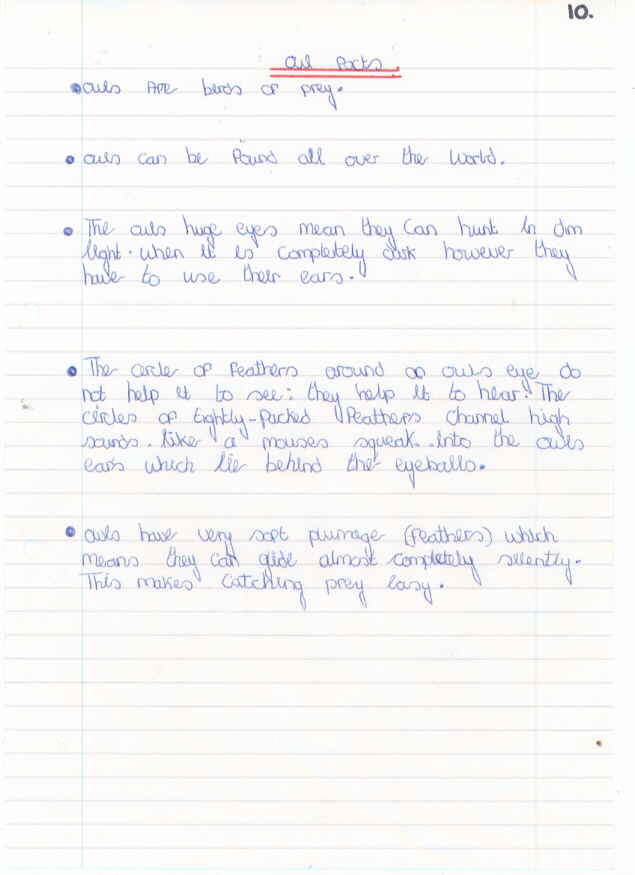 10.
Owl Facts.
• owls Are birds of prey.
• owls can be found all over the world.
• The owls huge eyes mean they can hunt in dim
light. when it is completely dark however they
have to use their ears.
• The circle of feathers around an owls eye do
not help it to see: they help it to hear. The
circles of tightly-packed feathers channel high
sounds. like a mouses squeak. into the owls
ears which lie behind the eyeballs.
• owls have very soft plumage (feathers) which
means they can glide almost completely silently.
This makes catching prey easy.